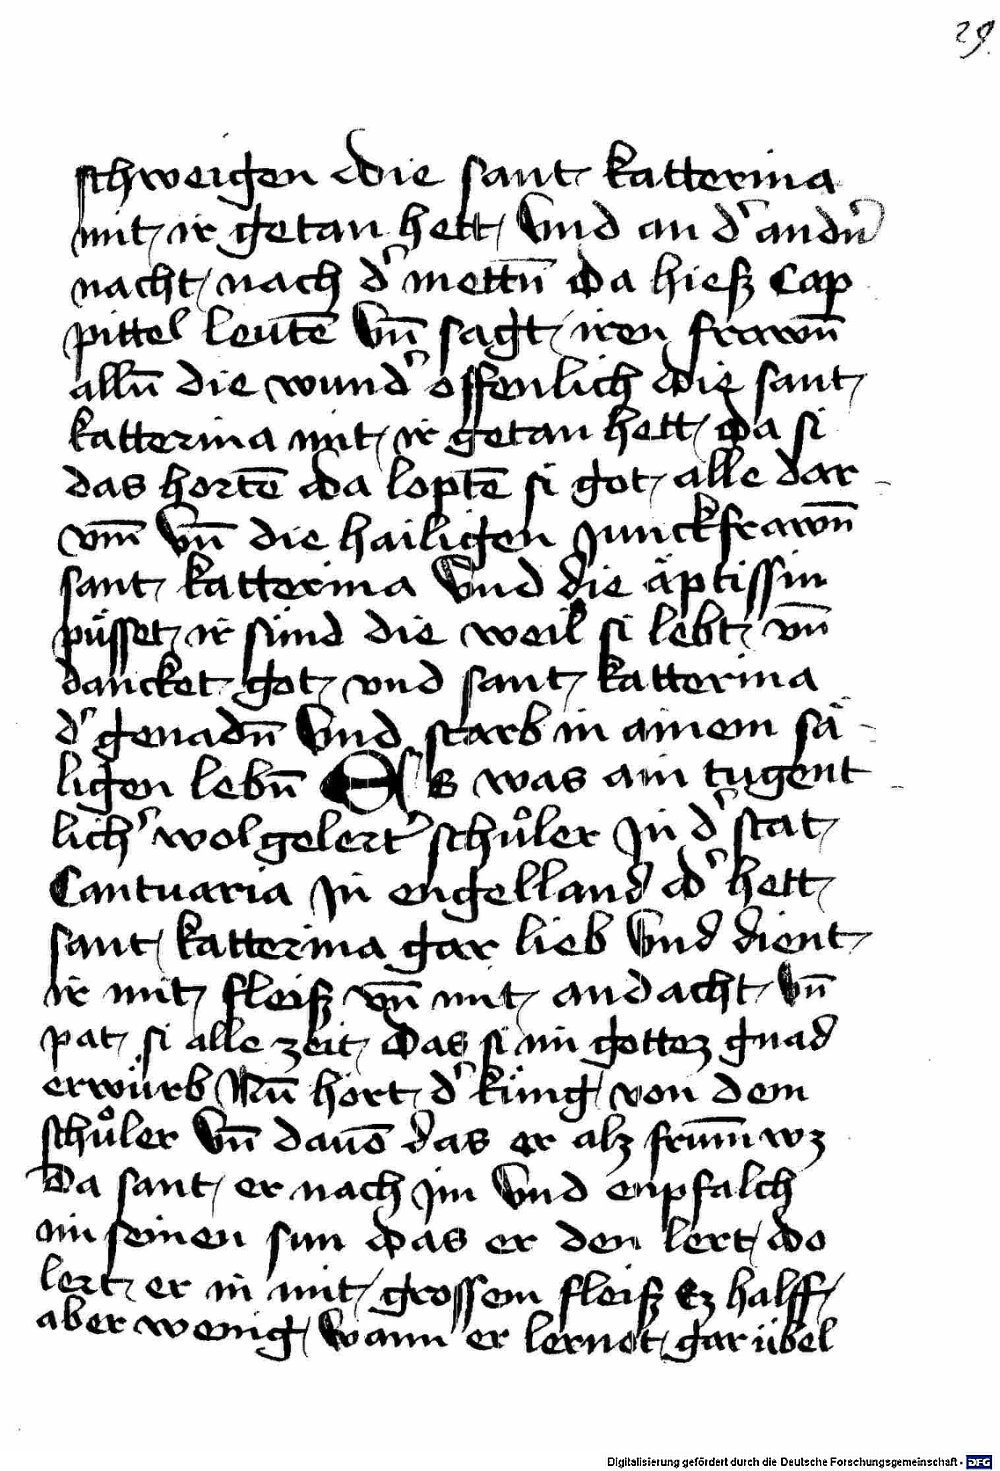 29.
schweigen die sant katterina
mit ir getan hett Vnd an d' andn̄
nacht nach d' mettn̄ Da hiesz Cap
pittel leutē Vn̄ sagt iren frawn̄
alln̄ die wund' offenlich die sant
katterina mit ir getan hett da si
das hortē da loptē si got alle dar-
vm̄ Vn̄ die hailigen Junckfrawn̄
sant katterina Vnd die äptissin
püsset ir sünd die weil si lebt vn̄
dancket got vnd sant katterina
d' genadn̄ Vnd starb in ainem sä-
ligen lebn̄ Es was ain tugent-
lich' wolgelert' schůler In d' stat
Cantuaria In engelland d' hett
sant katterina gar lieb Vnd dient
ir mit fleisz vn̄ mit andacht Vn̄
pat si alle zeit Das si im gottez gnad
erwürb Nū hort d' küng von dem
schůler Vn̄ dauō das er alz frum̄ wz
Da sant er nach im Vnd enpfalch
im seinen sun das er den lert do
lert er in mit grossem fleisz Ez halff
aber wenig Wann er lernet gar übel
Digitalisierung gefördert durch die Deutsche Forschungsgemeinschaft - DFG